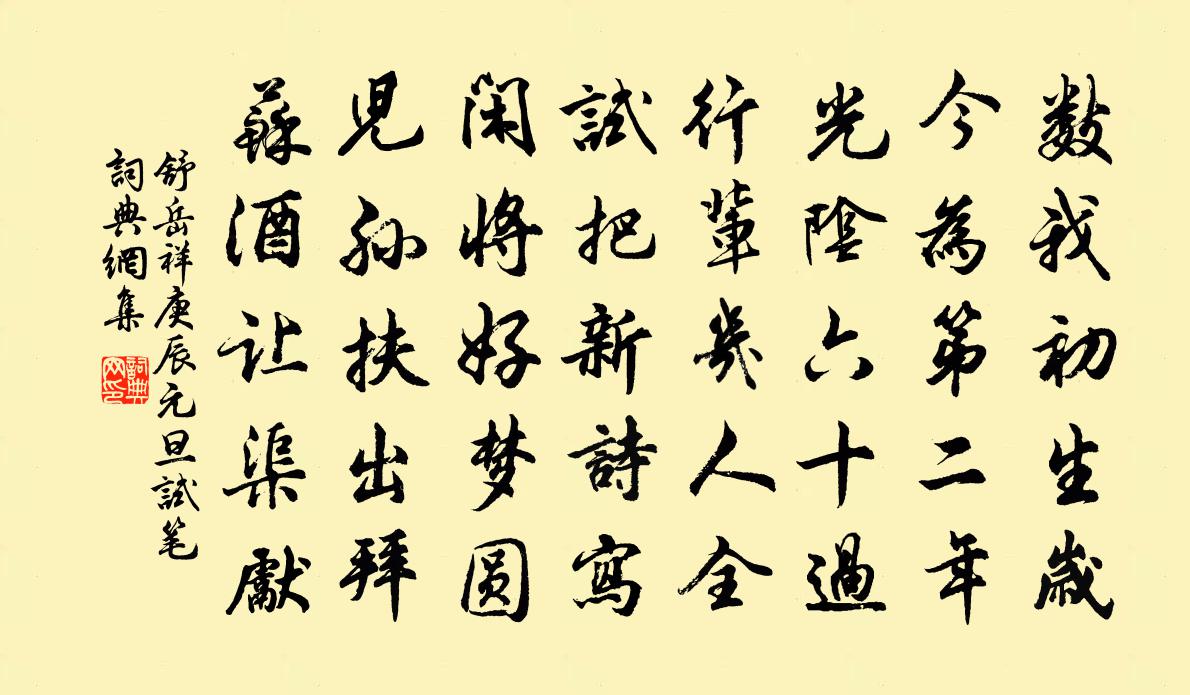 数我初生歲
今為第二年
光陰六十過
行輩幾人全
試把新詩寫
閑將好梦圆
児孫扶出拜
蘇酒让渠獻
舒岳祥庚辰元旦試笔
詞典網集
詞典
网印